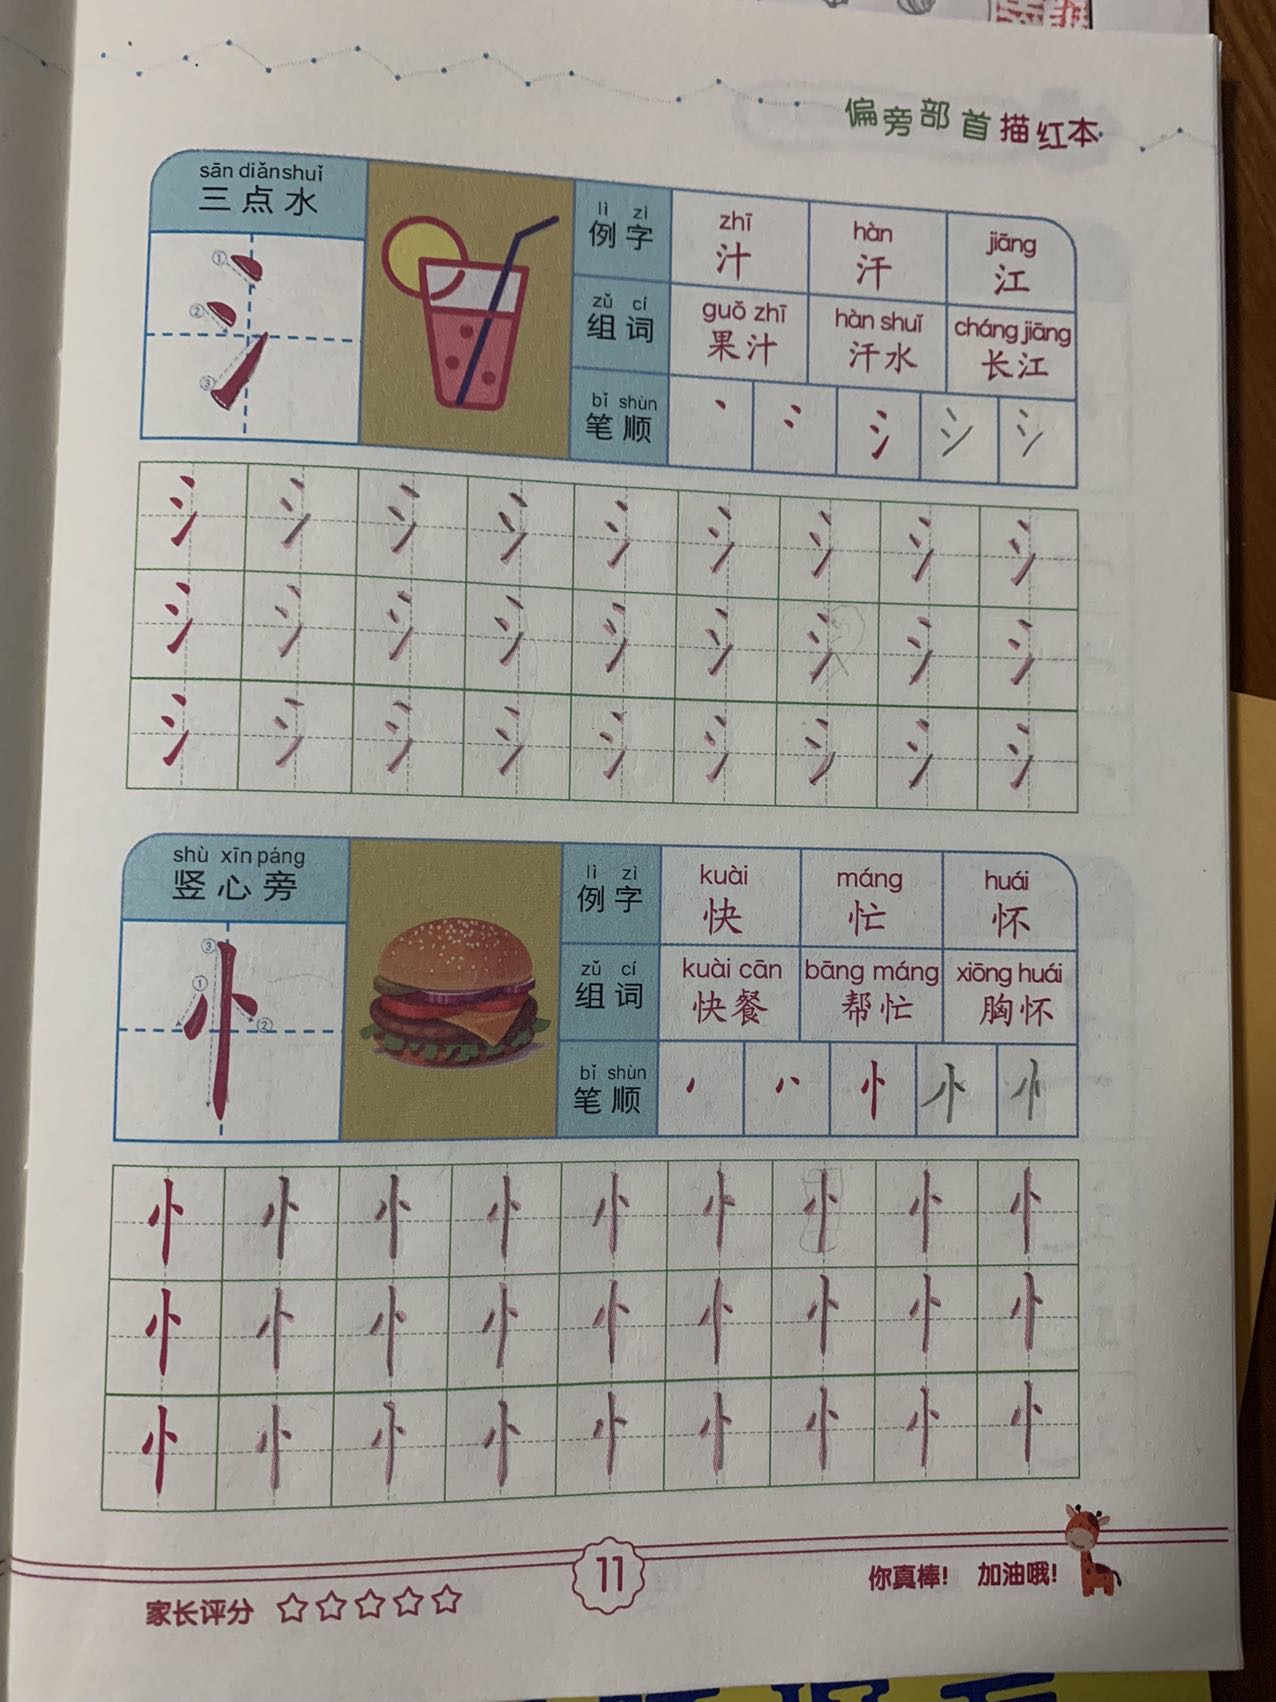 偏旁部首描红本
sān diǎn shuǐ
三点水
① ② ③
lì zì
例字
zhī hàn jiāng
汁 汗 江
zǔ cí
组词
guǒ zhī hàn shuǐ cháng jiāng
果汁 汗水 长江
bǐ shùn
笔顺
丶 冫 氵 氵 氵
氵 氵 氵 氵 氵 氵 氵 氵 氵
氵 氵 氵 氵 氵 氵 氵 氵 氵
氵 氵 氵 氵 氵 氵 氵 氵 氵
shù xīn páng
竖心旁
③ ① ②
lì zì
例字
kuài máng huái
快 忙 怀
zǔ cí
组词
kuài cān bāng máng xiōng huái
快餐 帮忙 胸怀
bǐ shùn
笔顺
忄 忄 忄
忄 忄 忄 忄 忄 忄 忄 忄 忄
忄 忄 忄 忄 忄 忄 忄 忄 忄
忄 忄 忄 忄 忄 忄 忄 忄 忄
11
你真棒! 加油哦!
家长评分 ☆☆☆☆☆